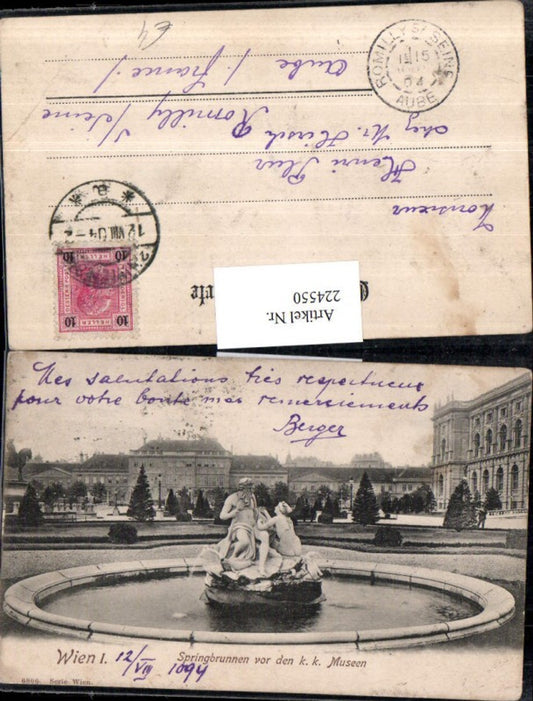 64
ROMILLY S/ SEINE
15
04
AUBE
Monsieur
Henri
chez Mr. Hirsch
Romilly / Seine
Aube / France /
12 VIII 04
10 HELLER 10
10 HELLER 10
Artikel Nr.
224550
Mes salutations très respectueux
pour votre bonté mes remerciements
Berger
Wien I. 12/VIII 1094 Springbrunnen vor den k. k. Museen
6866. Serie Wien.